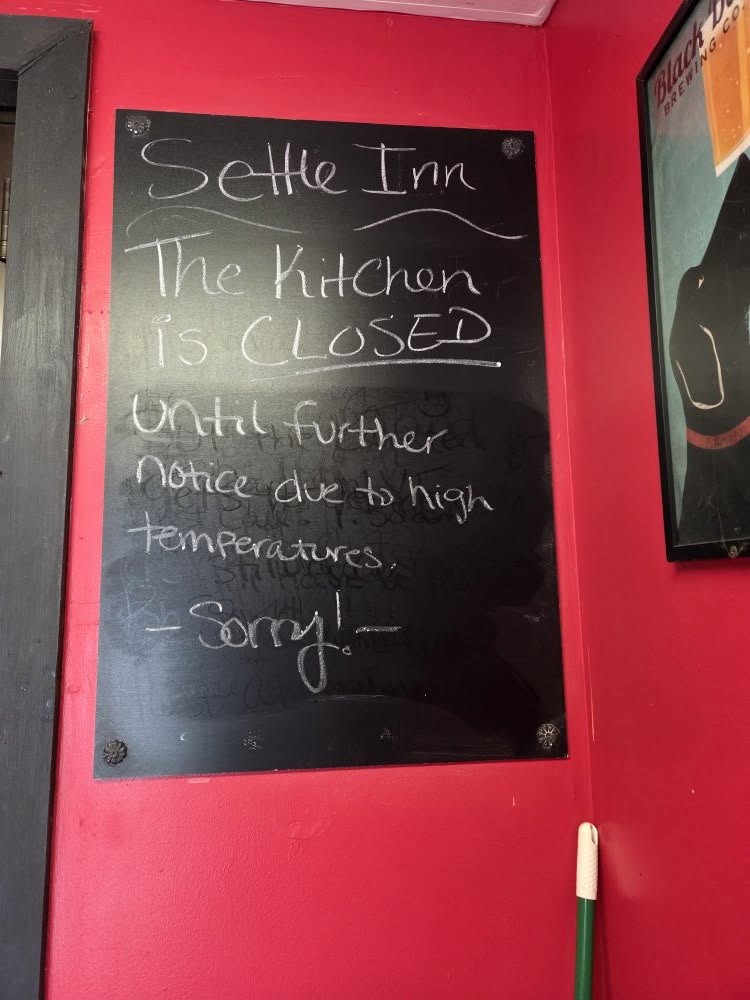 Settle Inn
The Kitchen
is CLOSED
until further
notice due to high
temperatures.
- Sorry! -
Black
BREWING CO